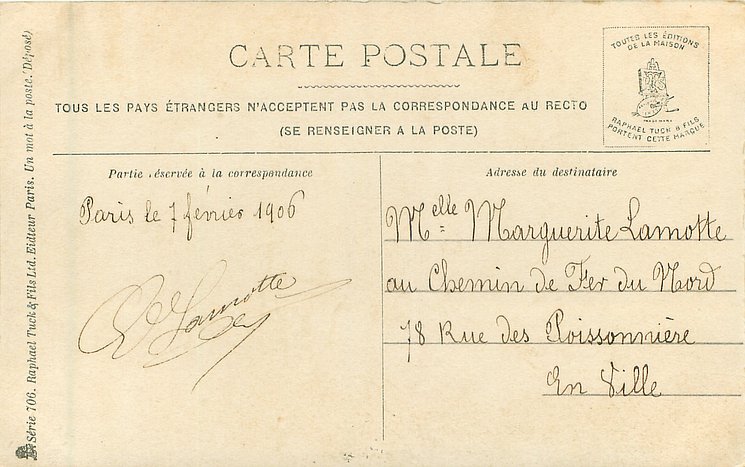 CARTE POSTALE
TOUS LES PAYS ÉTRANGERS N'ACCEPTENT PAS LA CORRESPONDANCE AU RECTO
(SE RENSEIGNER A LA POSTE)
TOUTES LES ÉDITIONS
DE LA MAISON
RAPHAEL TUCK & FILS
PORTENT CETTE MARQUE
Partie réservée à la correspondance
Paris le 7 février 1906
Lamotte
Adresse du destinataire
Melle Marguerite Lamotte
au Chemin de Fer du Nord
78 Rue des Poissonnière
En Ville
Série 706. Raphael Tuck & Fils Ltd. Eidteur Paris. Un mot à la poste. (Déposé)